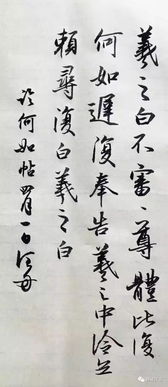 羲之白不審ミ尊體比復
何如遲復奉告羲之中冷無
賴尋復白羲之白
何如帖四月一日